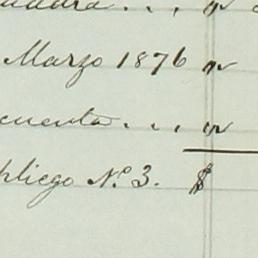 Marzo 1876 "
cuenta . . . "
pliego N.o 3. $